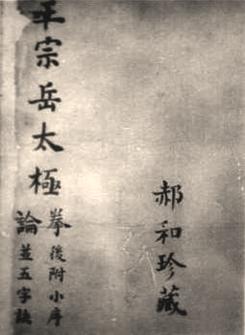 王宗岳太極
拳後附小序
論並五字訣
郝和珍藏